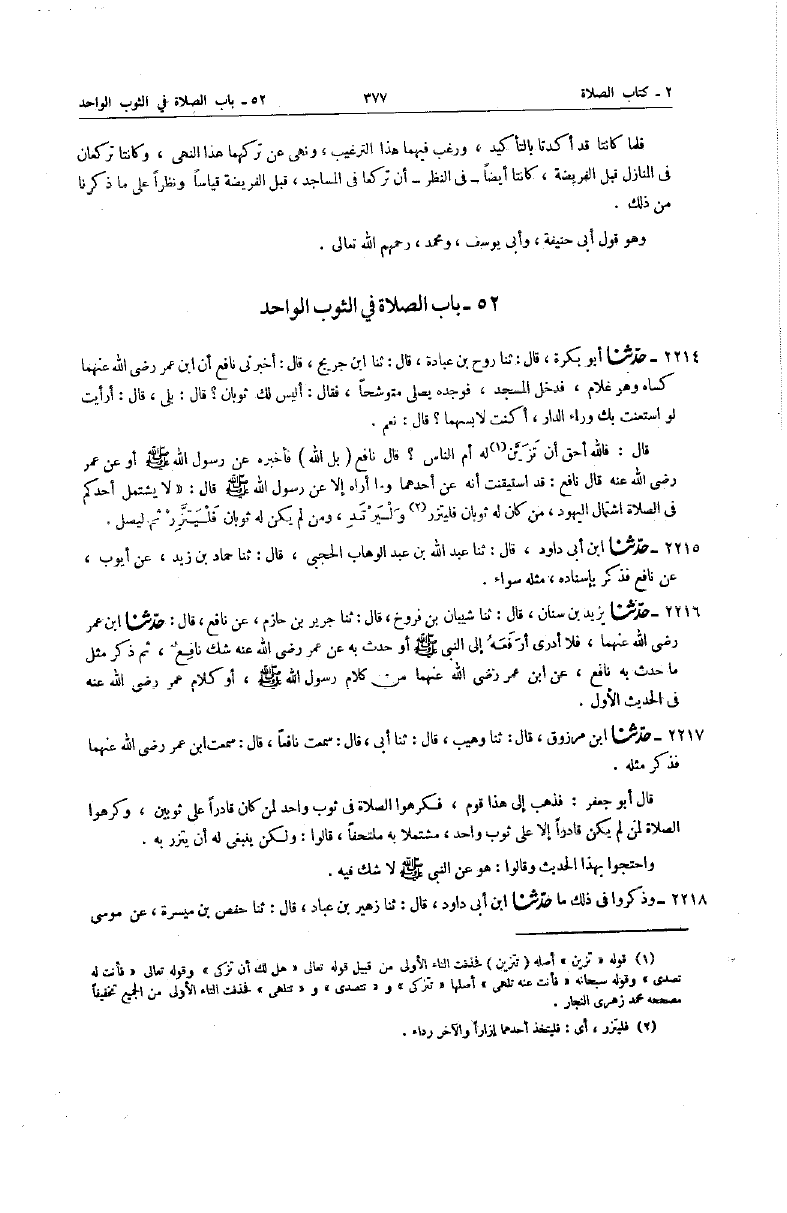 ٢ - كتاب الصلاة ٣٧٧ ٥٢ - باب الصلاة في الثوب الواحد
فلما كانتا قد أكدتا بالتأكيد ، ورغب فيهما هذا الترغيب ، ونهى عن تركهما هذا النهى ، وكانتا تركعان
فى المنازل قبل الفريضة ، كانتا أيضاً ـ فى النظر ـ أن تركعا فى المساجد ، قبل الفريضة قياساً ونظراً على ما ذكرنا
من ذلك .
وهو قول أبى حنيفة ، وأبى يوسف ، ومحمد ، رحمهم الله تعالى .
٥٢ - باب الصلاة في الثوب الواحد
٢٢١٤ - حدثنا أبو بكرة ، قال : ثنا روح بن عبادة ، قال : ثنا ابن جريج ، قال : أخبرنى نافع أن ابن عمر رضى الله عنهما
كساه وهو غلام ، فدخل المسجد ، فوجده يصلى متوشحاً ، فقال : أليس لك ثوبان ؟ قال : بلى ، قال : أرأيت
لو استعنت بك وراء الدار ، أكنت لابسهما ؟ قال : نعم .
قال : فالله أحق أن تَزَيَّن(١) له أم الناس ؟ قال نافع ( بل الله ) فأخبره عن رسول الله ﷺ أو عن عمر
رضى الله عنه قال نافع : قد استيقنت أنه عن أحدهما وما أراه إلا عن رسول الله ﷺ قال : « لا يشتمل أحدكم
فى الصلاة اشتمال اليهود ، من كان له ثوبان فليتزر(٢) وَلْيَرْتَدِ ، ومن لم يكن له ثوبان فَلْيَتَّزِرْ ثم ليصل .
٢٢١٥ - حدثنا ابن أبى داود ، قال : ثنا عبد الله بن عبد الوهاب الحجبى ، قال : ثنا حماد بن زيد ، عن أيوب ،
عن نافع فذكر بإسناده ، مثله سواء .
٢٢١٦ - حدثنا يزيد بن سنان ، قال : ثنا شيبان بن فروخ ، قال : ثنا جرير بن حازم ، عن نافع ، قال : حدثنا ابن عمر
رضى الله عنهما ، فلا أدرى أرَفَعَهُ إلى النبى ﷺ أو حدث به عن عمر رضى الله عنه شك نافع ، ثم ذكر مثل
ما حدث به نافع ، عن ابن عمر رضى الله عنهما من كلام رسول الله ﷺ ، أو كلام عمر رضى الله عنه
فى الحديث الأول .
٢٢١٧ - حدثنا ابن مرزوق ، قال : ثنا وهيب ، قال : ثنا أبى ، قال : سمعت نافعاً ، قال : سمعت ابن عمر رضى الله عنهما
فذكر مثله .
قال أبو جعفر : فذهب إلى هذا قوم ، فكرهوا الصلاة فى ثوب واحد لمن كان قادراً على ثوبين ، وكرهوا
الصلاة لمن لم يكن قادراً إلا على ثوب واحد ، مشتملا به ملتحفاً ، قالوا : ولكن ينبغى له أن يتزر به .
واحتجوا بهذا الحديث وقالوا : هو عن النبى ﷺ لا شك فيه .
٢٢١٨ - وذكروا فى ذلك ما حدثنا ابن أبى داود ، قال : ثنا زهير بن عباد ، قال : ثنا حفص بن ميسرة ، عن موسى
(١) قوله « تزين » أصله ( تتزين ) فحذفت التاء الأولى من قبيل قوله تعالى « هل لك أن تزكى » وقوله تعالى « فأنت له
تصدى » وقوله سبحانه « فأنت عنه تلهى » أصلها « تتزكى » و « تتصدى » و « تتلهى » فحذفت التاء الأولى من الجميع تخفيفاً
مصححه محمد زهرى النجار .
(٢) فليتزر ، أى : فليتخذ أحدهما إزاراً والآخر رداء .